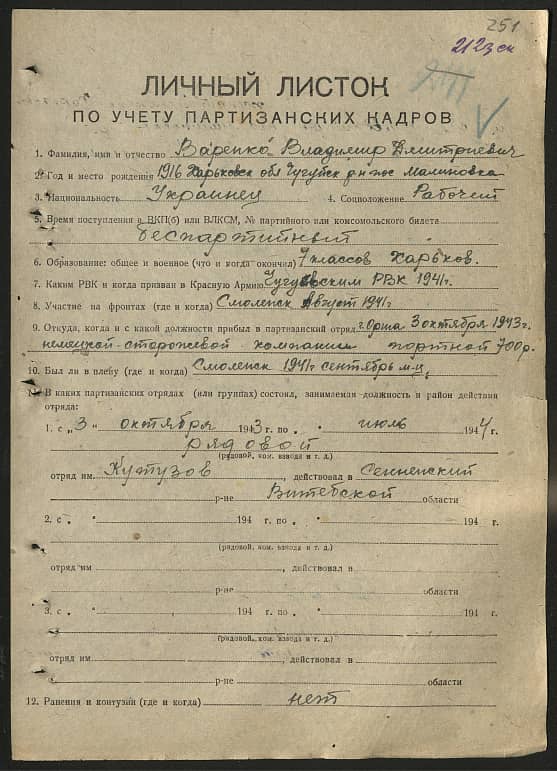 251
2123 ск
ЛИЧНЫЙ ЛИСТОК
ПО УЧЕТУ ПАРТИЗАНСКИХ КАДРОВ
1. Фамилия, имя и отчество Варенко Владимир Дмитриевич
2. Год и место рождения 1916 Харьковск обл Чугуевск р-н пос Малиновка
3. Национальность Украинец 4. Соцположение Рабочий
5. Время поступления в ВКП(б) или ВЛКСМ, № партийного или комсомольского билета
беспартийный
6. Образование: общее и военное (что и когда окончил) 7 классов Харьков.
7. Каким РВК и когда призван в Красную Армию Чугуевским РВК 1941г.
8. Участие на фронтах (где и когда) Смоленск Август 1941г
9. Откуда, когда и с какой должности прибыл в партизанский отряд г. Орша 3 октября 1943г.
немецкой-сторожевой компании портной 700р.
10. Был ли в плену (где и когда) Смоленск 1941г сентябрь м-ц
11. В каких партизанских отрядах (или группах) состоял, занимаемая должность и район действия
отряда:
1. с „ 3 " октября 1943 г. по " июль 1944 г.
рядовой
(рядовой, ком. взвода и т. д.)
отряд им. Кутузов, действовал в Сенненский
р-не Витебской области
2. с " " 194 г. по " " 194 г.
(рядовой, ком. взвода и т. д.)
отряд им , действовал в
р-не области
3. с " " 194 г. по " " 194 г.
(рядовой, ком. взвода и т. д.)
отряд им , действовал в
р-не области
12. Ранения и контузии (где и когда) нет